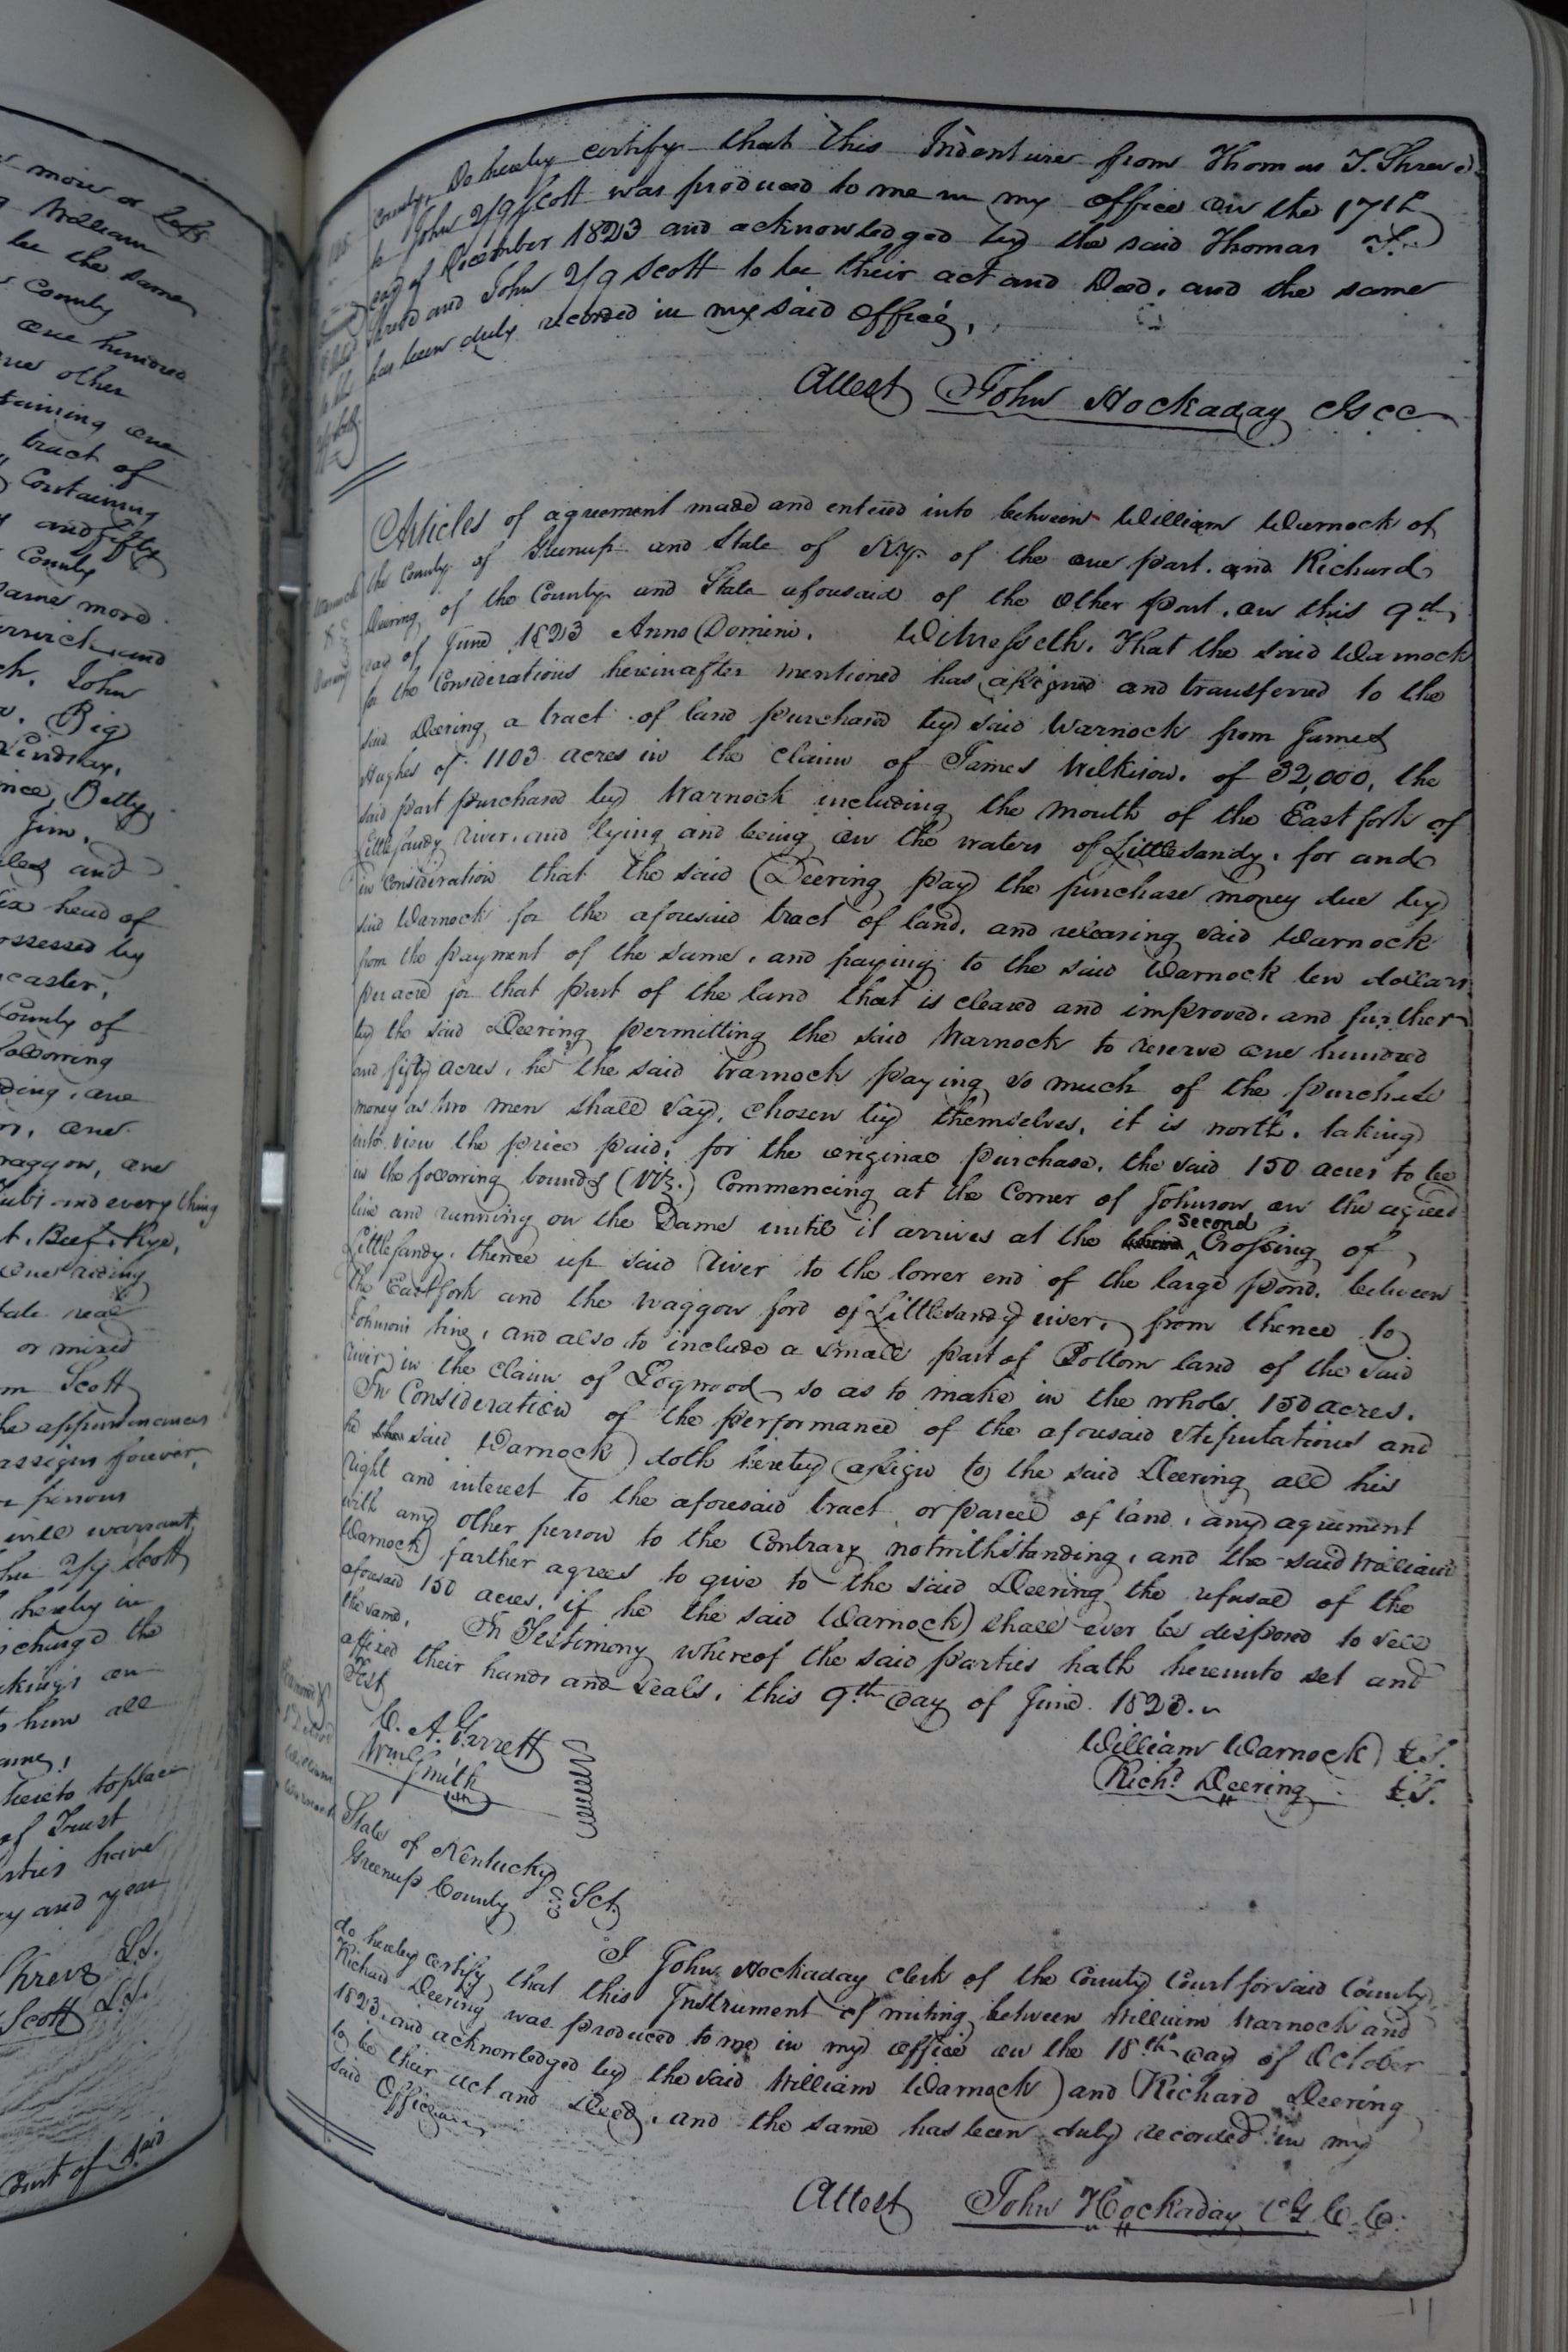 more or less
William
be the same
County
one hundred
other
containing one
tract of
Containing
and fifty
County
same more
and
John
Big
Lindsay,
Betty,
Jim,
and
head of
possessed by
County of
following
one
one
waggon, one
and every thing
Beef, Rye,
one riding
real
or mixed
Scott
the appurtenances
assigns forever,
persons
will warrant
Scott
hereby in
discharge the
on
him all
hereto to place
of Trust
parties have
day and year
Shreve L.S.
Scott L.S.
Court of said
County, Do hereby certify that this Indenture from Thomas T. Shreve
to John Scott was produced to me in my office on the 17th
day of December 1823 and acknowledged by the said Thomas T.
Shreve and John Scott to be their act and Deed, and the same
has been duly recorded in my said Office,
Attest John Hockaday
Articles of agreement made and entered into between William Warnock of
the County of Greenup and State of Ky. of the one part. and Richard
Deering of the County and State aforesaid of the other part, on this 9th
day of June 1823 Anno Domini. Witnesseth, That the said Warnock
for the Considerations hereinafter mentioned has assigned and transferred to the
said Deering a tract of land purchased by said Warnock from James
Hughes of 1103 acres in the claim of James Wilkison. of 32,000, the
said part purchased by Warnock including the mouth of the East fork of
Little sandy river, and lying and being on the waters of Little sandy, for and
in consideration that the said Deering pay the purchase money due by
said Warnock for the aforesaid tract of land, and releasing said Warnock
from the payment of the same, and paying to the said Warnock ten dollars
per acre for that part of the land that is cleared and improved, and further
by the said Deering permitting the said Warnock to reserve one hundred
and fifty acres, he the said Warnock paying so much of the purchase
money as two men shall say, chosen by themselves, it is worth, taking
into view the price paid, for the original purchase, the said 150 acres to be
in the following bounds (Viz.) Commencing at the Corner of Johnson on the agreed
line and running on the Same until it arrives at the third Second Crossing of
Little sandy, thence up said river to the lower end of the large pond, between
the East fork and the waggon ford of Little sandy river, from thence to
Johnson's line, and also to include a small part of Bottom land of the said
river in the claim of Logwood so as to make in the whole 150 acres.
In Consideration of the performance of the aforesaid stipulations and
he the said Warnock doth hereby assign to the said Deering all his
right and interest to the aforesaid tract or parcel of land, any agreement
with any other person to the Contrary notwithstanding, and the said William
Warnock farther agrees to give to the said Deering the refusal of the
aforesaid 150 acres, if he the said Warnock shall ever be disposed to sell
the same. In Testimony whereof the said parties hath hereunto set and
affixed their hands and seals, this 9th day of June 1823.
Test
C. A. Garrett
Wm Smith
William Warnock L.S.
Richd Deering L.S.
State of Kentucky
Greenup County Sct.
I John Hockaday Clerk of the County Court for said County
do hereby certify that this Instrument of writing between William Warnock and
Richard Deering was produced to me in my office on the 18th day of October
1823. and acknowledged by the said William Warnock and Richard Deering
to be their act and Deed, and the same has been duly recorded in my
said Office
Attest John Hockaday C G C C.
11